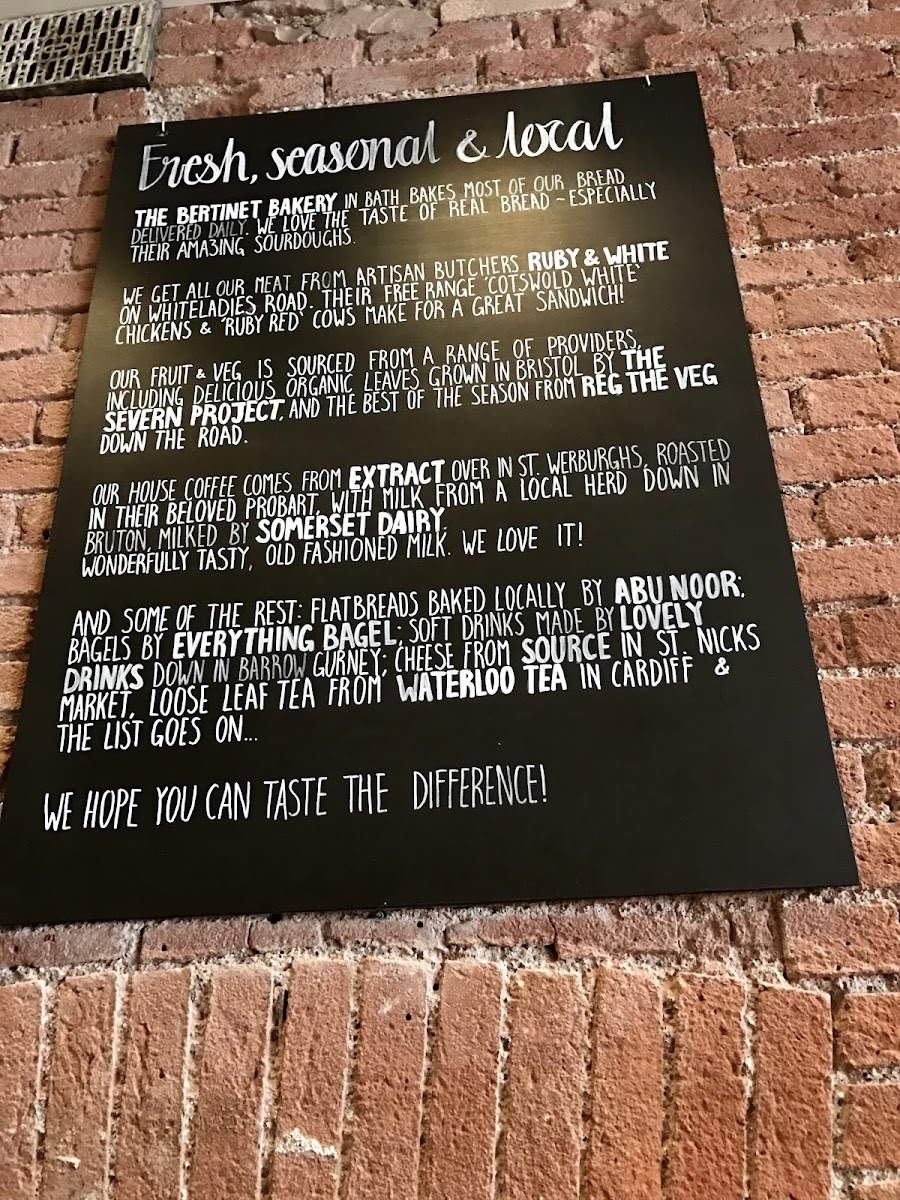 Fresh, seasonal & local
THE BERTINET BAKERY IN BATH BAKES MOST OF OUR BREAD
DELIVERED DAILY. WE LOVE THE TASTE OF REAL BREAD ~ ESPECIALLY
THEIR AMA3ING SOURDOUGHS.
WE GET ALL OUR MEAT FROM ARTISAN BUTCHERS RUBY & WHITE
ON WHITELADIES ROAD. THEIR FREE RANGE 'COTSWOLD WHITE'
CHICKENS & 'RUBY RED' COWS MAKE FOR A GREAT SANDWICH!
OUR FRUIT & VEG IS SOURCED FROM A RANGE OF PROVIDERS,
INCLUDING DELICIOUS ORGANIC LEAVES GROWN IN BRISTOL BY THE
SEVERN PROJECT, AND THE BEST OF THE SEASON FROM REG THE VEG
DOWN THE ROAD.
OUR HOUSE COFFEE COMES FROM EXTRACT OVER IN ST. WERBURGHS, ROASTED
IN THEIR BELOVED PROBART, WITH MILK FROM A LOCAL HERD DOWN IN
BRUTON, MILKED BY SOMERSET DAIRY.
WONDERFULLY TASTY, OLD FASHIONED MILK. WE LOVE IT!
AND SOME OF THE REST: FLATBREADS BAKED LOCALLY BY ABU NOOR;
BAGELS BY EVERYTHING BAGEL; SOFT DRINKS MADE BY LOVELY
DRINKS DOWN IN BARROW GURNEY; CHEESE FROM SOURCE IN ST. NICKS
MARKET, LOOSE LEAF TEA FROM WATERLOO TEA IN CARDIFF &
THE LIST GOES ON...
WE HOPE YOU CAN TASTE THE DIFFERENCE!